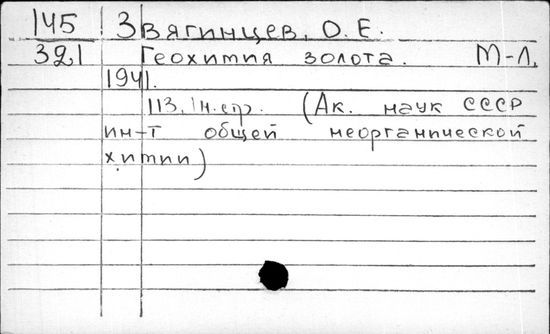 145 Звягинцев, О. Е.
321 Геохимия золота. М-Л,
1941.
113, 1н.стр. (Ак. наук СССР
ин-т общей неорганической
химии)